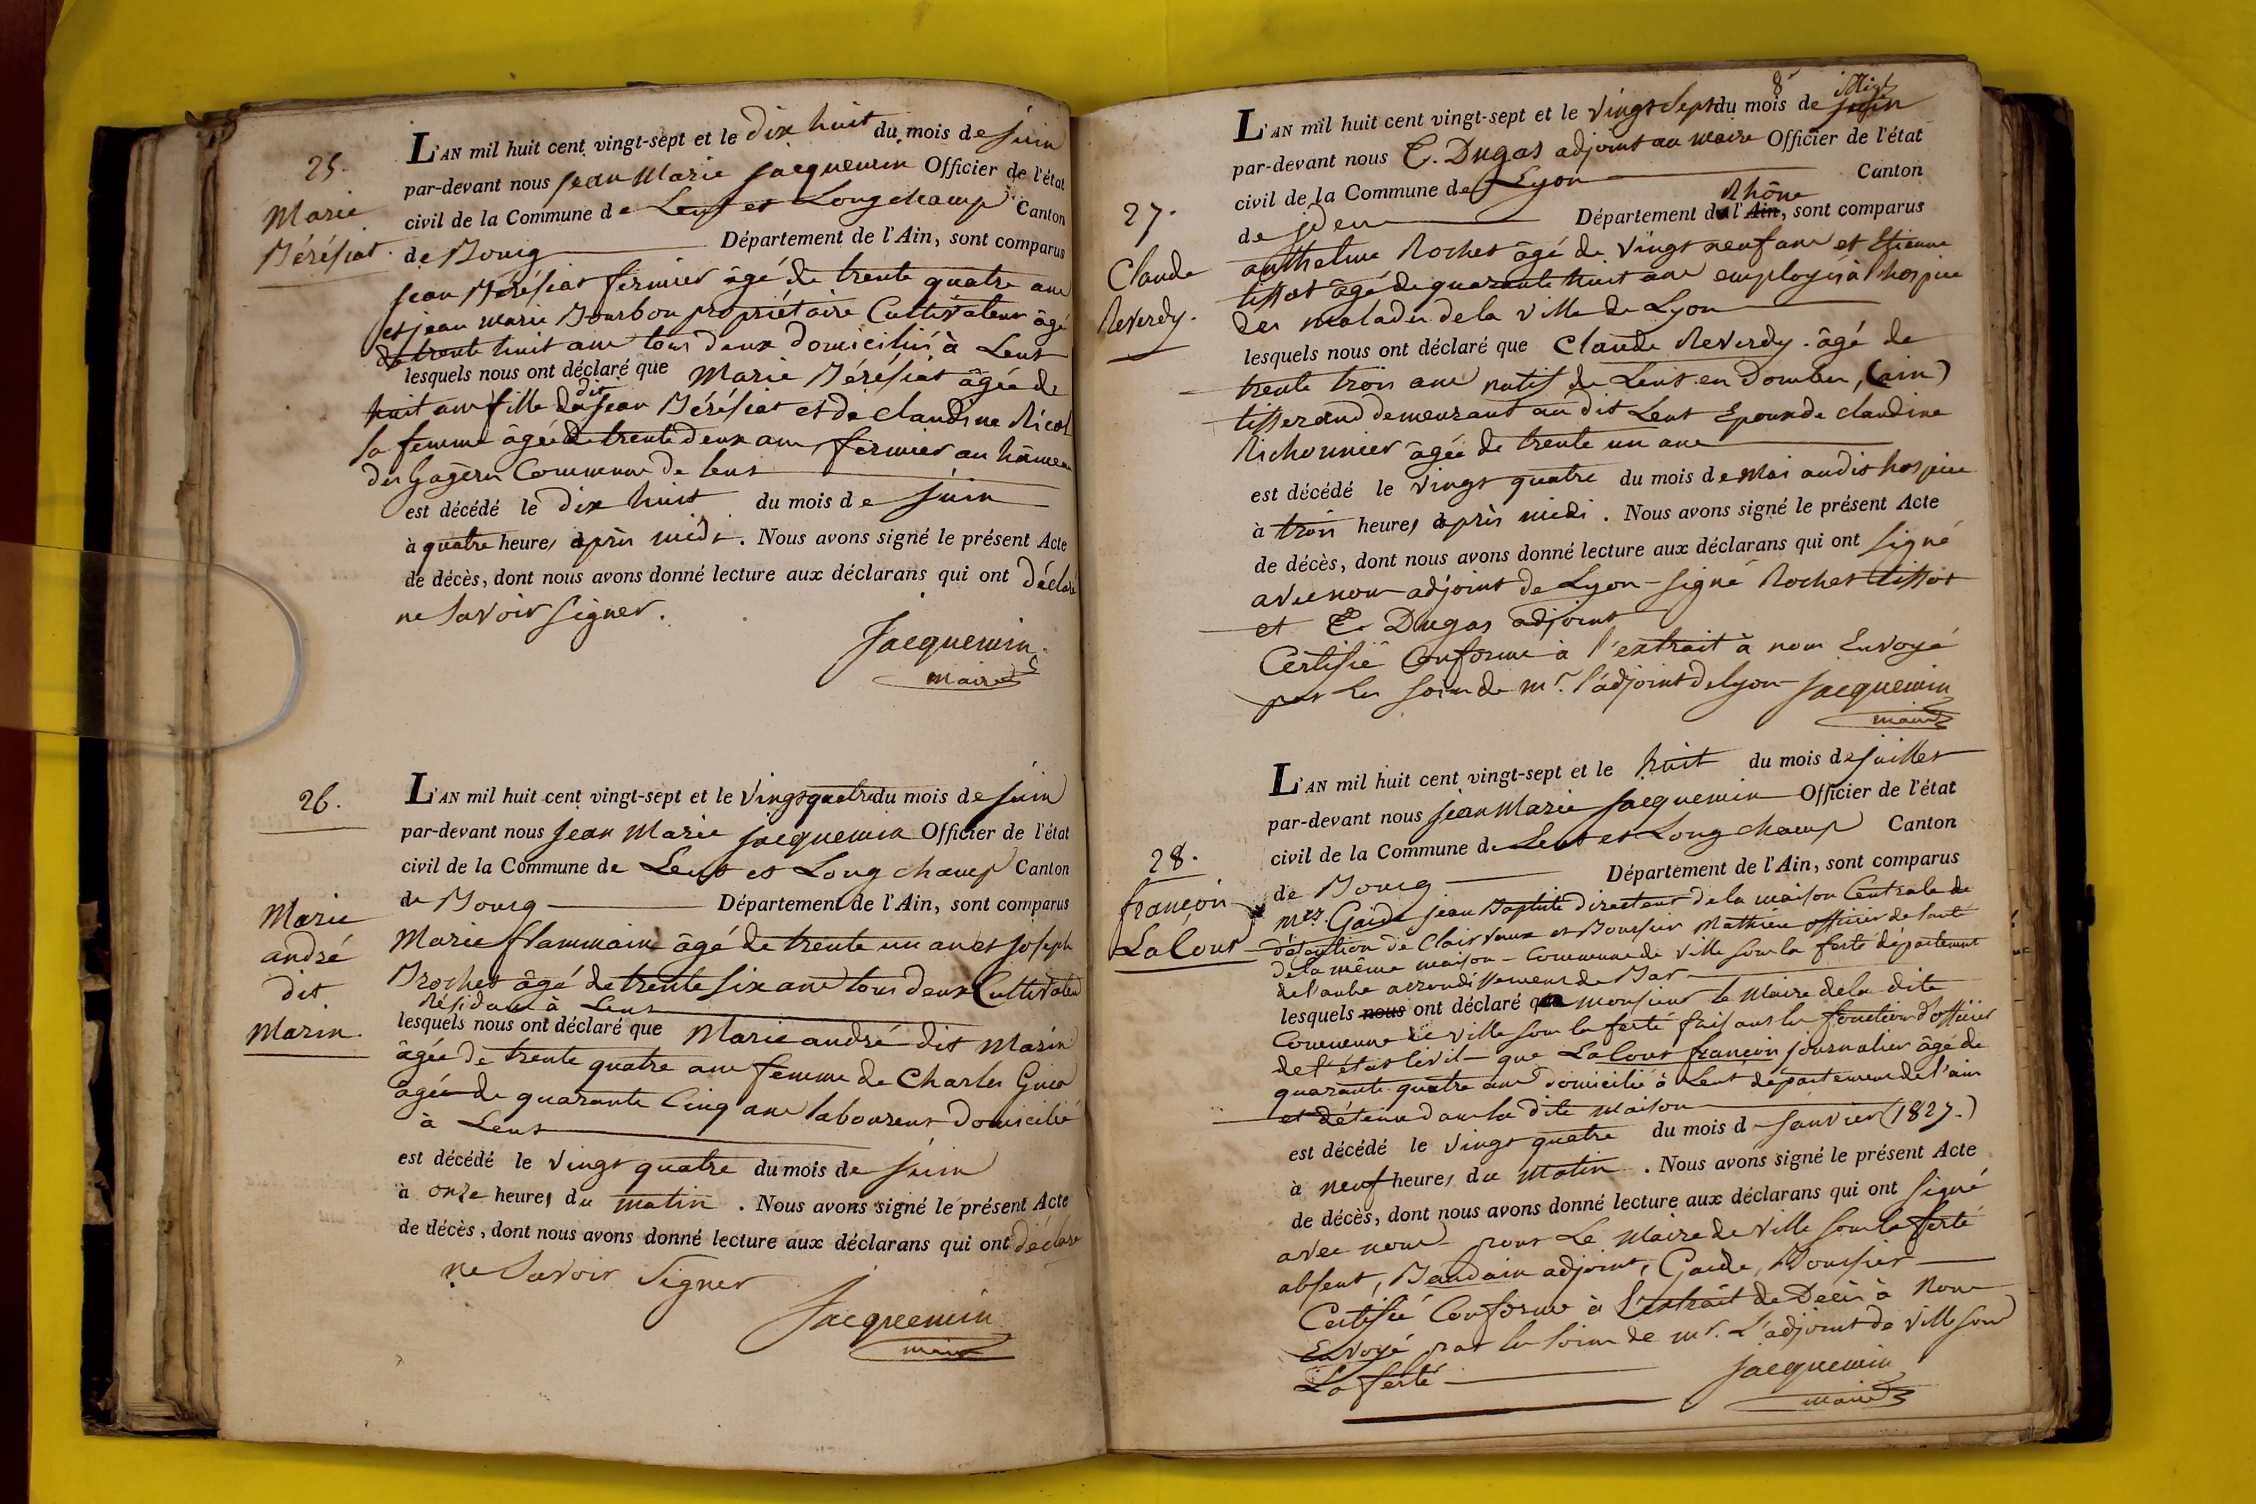 25.
Marie
Béréfiat.
L'AN mil huit cent vingt-sept et le dix huit du mois de juin
par-devant nous Jean Marie Jacquemin Officier de l'état
civil de la Commune de Lent et Longchamp Canton
de Bourg Département de l'Ain, sont comparus
Jean Béréfiat fermier âgé de trente quatre ans
et jean marie Bourbon propriétaire Cultivateur âgé
de trente huit ans tous deux domiciliés à Lent
lesquels nous ont déclaré que Marie Béréfiat âgée de
huit ans fille du dit Jean Béréfiat et de claudine Nicol
sa femme âgée de trente deux ans fermier au hâmeau
des Gagères Commune de lent
est décédé le dix huit du mois de juin
à quatre heures après midi. Nous avons signé le présent Acte
de décès, dont nous avons donné lecture aux déclarans qui ont déclaré
ne Savoir Signer.
Jacquemin
maire
26.
Marie
andré
dit
Marin.
L'AN mil huit cent vingt-sept et le vingt quatre du mois de juin
par-devant nous Jean Marie Jacquemin Officier de l'état
civil de la Commune de Lent et Longchamp Canton
de Bourg Département de l'Ain, sont comparus
Marie flammain âgé de trente un an et joseph
Brochet âgé de trente six ans tous deux Cultivateurs
Résidans à Lent
lesquels nous ont déclaré que Marie andré dit Marin
âgée de trente quatre ans femme de Charles
âgé de quarante Cinq ans laboureur domicilié
à Lent
est décédé le vingt quatre du mois de juin
à onze heures du matin. Nous avons signé le présent Acte
de décès, dont nous avons donné lecture aux déclarans qui ont déclaré
ne Savoir Signer
Jacquemin
maire
27.
Claude
Reverdy.
L'AN mil huit cent vingt-sept et le vingt Sept du mois de juin
par-devant nous E. Dugas adjoint au maire Officier de l'état
civil de la Commune de Lyon Canton
de jdem Département du l'Ain Rhône, sont comparus
anthelme Rochet âgé de vingt neuf ans et Etienne
tissot âgé de quarante huit ans employés à l'hospice
des malades de la ville de Lyon
lesquels nous ont déclaré que Claude Reverdy. âgé de
trente trois ans natif de Lent en Dombes, (ain)
tisserand demeurant au dit Lent Epoux de claudine
Richonnier âgée de trente un ans
est décédé le vingt quatre du mois de Mai audit hospice
à trois heures après midi. Nous avons signé le présent Acte
de décès, dont nous avons donné lecture aux déclarans qui ont signé
avec nous adjoint de Lyon - Signé Rochet tissot
et E. Dugas adjoint
Certifié Conforme à l'extrait à nous Envoyé
par les soins de mr. l'adjoint de lyon Jacquemin
maire
28.
françois
LaCour
L'AN mil huit cent vingt-sept et le huit du mois de juillet
par-devant nous Jean Marie Jacquemin Officier de l'état
civil de la Commune de Lent et Longchamp Canton
de Bourg Département de l'Ain, sont comparus
mrs. Gaide jean Baptiste directeur de la maison Centrale de
détention de Clairvaux et Boursier Mathieu officier de Santé
de la même maison - Commune de ville Sous la ferté département
de l'aube arrondissement de Bar
lesquels nous ont déclaré que a monsieur le Maire de la dite
Commune de ville sous la ferté faisant les fonctions d'officier
de l'état Civil - que LaCour françois journalier âgé de
quarante quatre ans domicilié à Lent département de l'ain
et détenu dans la dite maison
est décédé le vingt quatre du mois de janvier (1827.)
à neuf heures du matin. Nous avons signé le présent Acte
de décès, dont nous avons donné lecture aux déclarans qui ont signé
avec nous pour Le Maire de ville Sous la ferté
absent, Baudain adjoint, Gaide, Boursier
Certifié Conforme à l'extrait de Décès à Nous
Envoyé par les Soins de mr. L'adjoint de ville Sous
La ferté
Jacquemin
maire